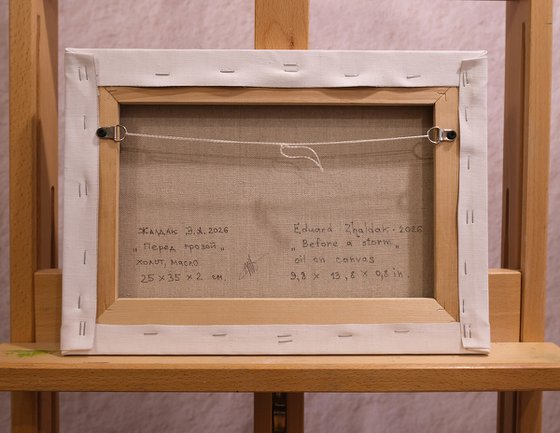 Жалдак Э.А. 2026
„Перед грозой„
холст, масло
25 × 35 × 2 см.
Eduard Zhaldak. 2026
„Before a storm„
oil on canvas
9,8 × 13,8 × 0,8 in.